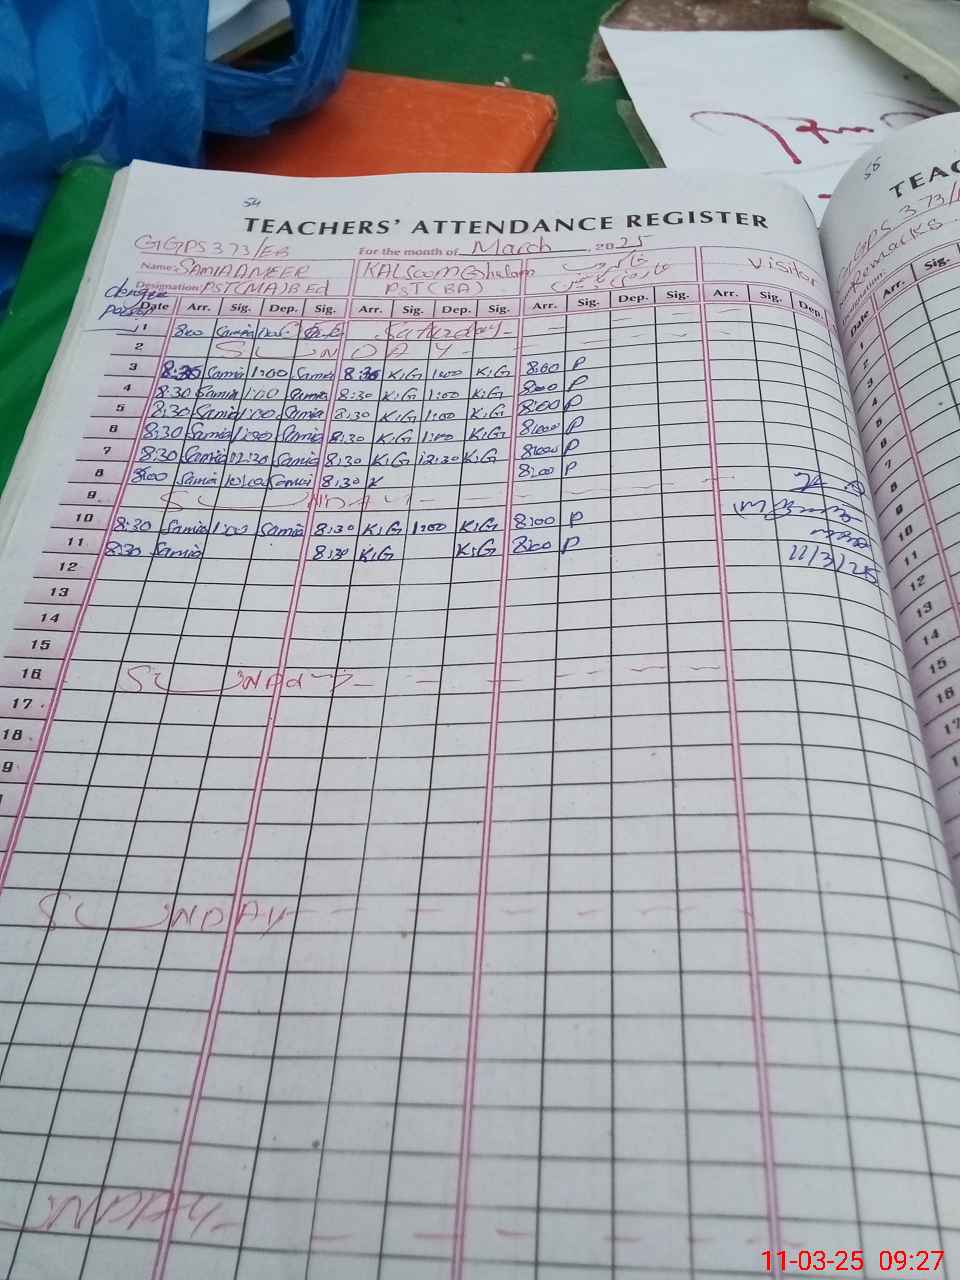 54
TEACHERS' ATTENDANCE REGISTER
GGPS 373/EB For the month of March 2025
Name: SAMIA AMEER KALSoom Ghulam Visitor
Designation: PST(MA)B.Ed PST(BA)
Date Arr. Sig. Dep. Sig. Arr. Sig. Dep. Sig. Arr. Sig. Dep. Sig. Arr. Sig. Dep.
1 8:00 Samia Saturday
2 SUNDAY
3 8:30 Samia 1:00 Samia 8:30 K.G 1:00 K.G 8:00 P
4 8:30 Samia 1:00 Samia 8:30 K.G 1:00 K.G 8:00 P
5 8:30 Samia 1:00 Samia 8:30 K.G 1:00 K.G 8:00 P
6 8:30 Samia 1:00 Samia 8:30 K.G 1:00 K.G 8:00 P
7 8:30 Samia 12:30 Samia 8:30 K.G 12:30 K.G 8:00 P
8 8:00 Samia 10:00 Samia 8:30 K 8:00 P
9 SUNDAY
10 8:30 Samia 1:00 Samia 8:30 K.G 1:00 K.G 8:00 P
11 8:30 Samia 8:30 K.G K.G 8:00 P 11/3/25
12
13
14
15
16 SUNDAY
17
18
9
SUNDAY
SUNDAY
55
TEAC
GGPS 373/
Remarks
Arr. Sig.
Date
1
2
3
4
5
6
7
8
9
10
11
12
13
14
15
16
17
11-03-25 09:27